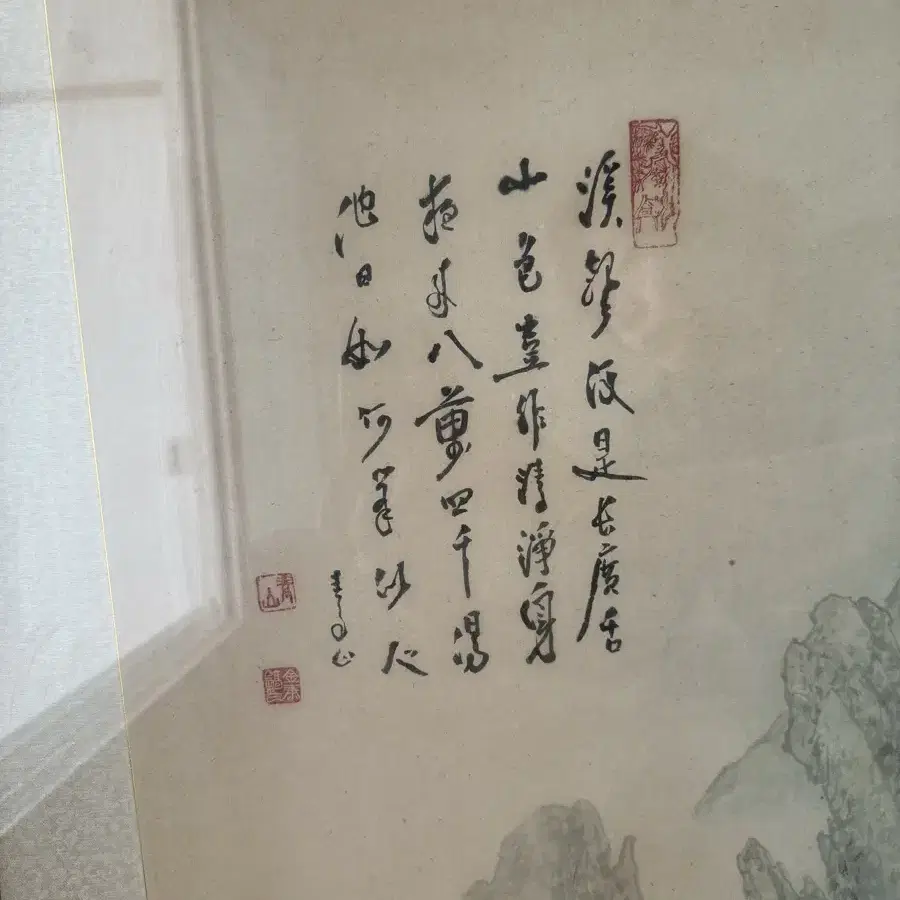 溪聲便是長廣舌
山色豈非清淨身
夜來八萬四千偈
他日如何舉似人
青山